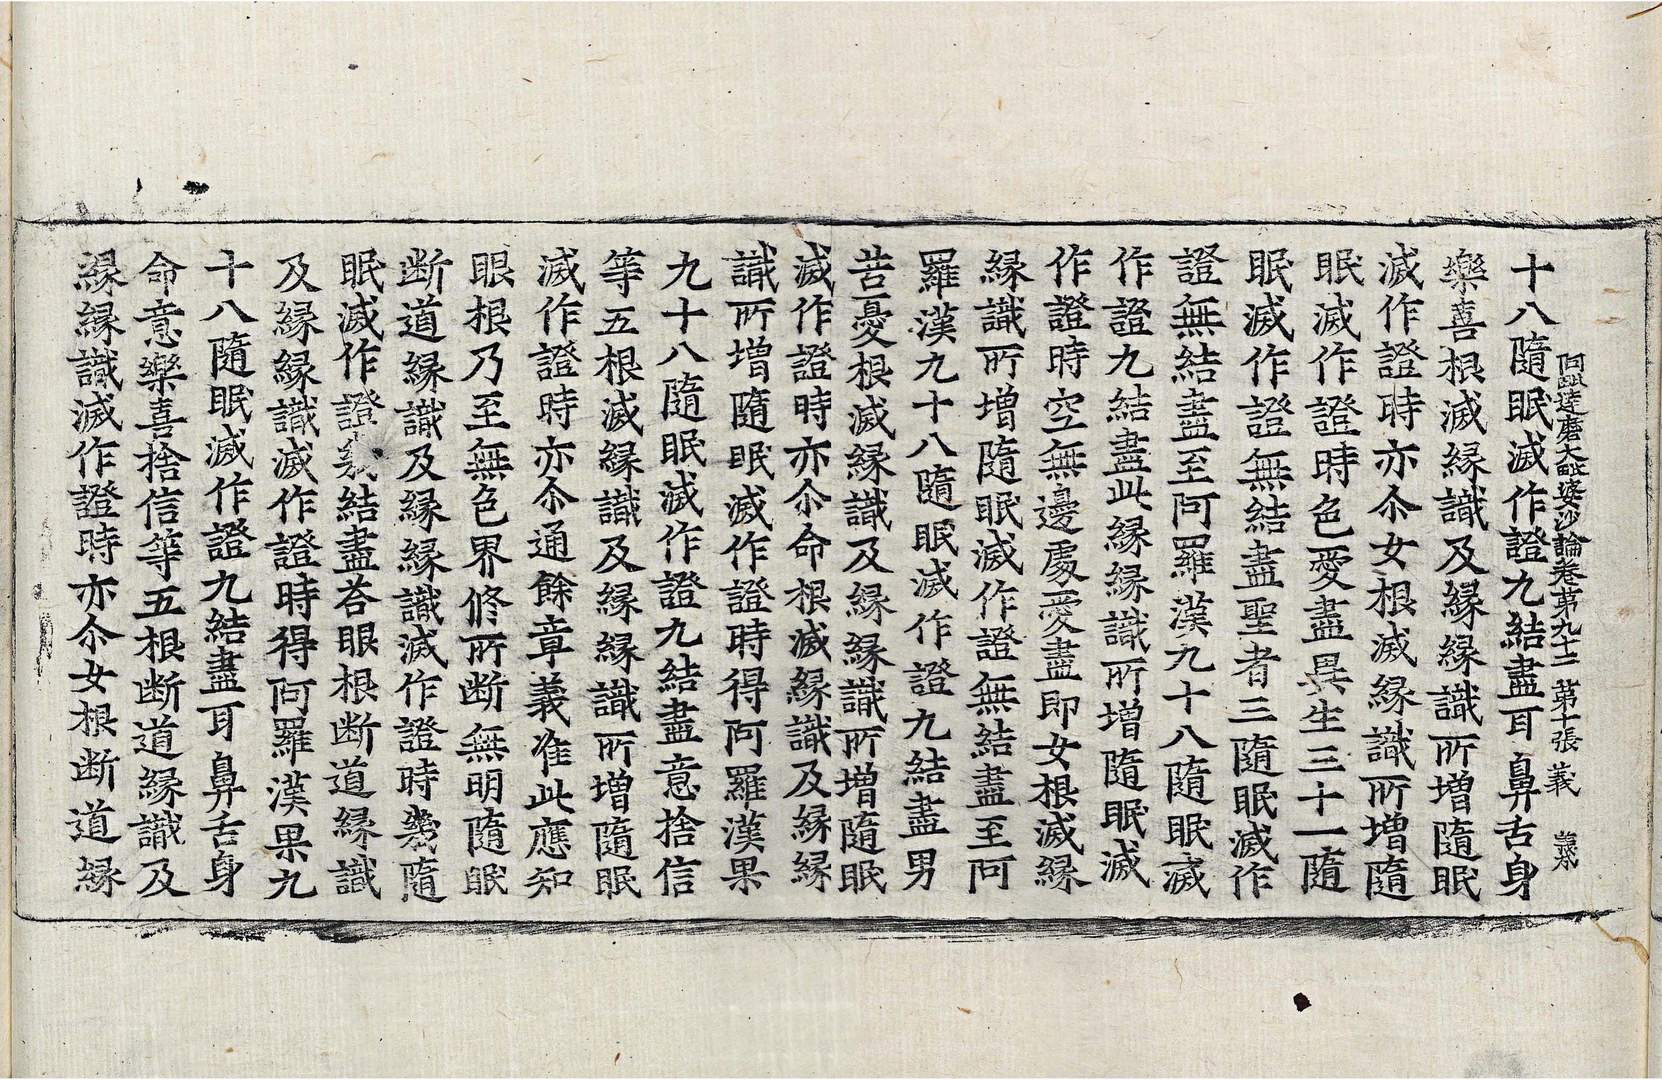 阿毗達磨大毗婆沙論卷第九十二 第十張 義
十八隨眠滅作證九結盡耳鼻舌身
樂喜根滅縁識及縁縁識所增隨眠
滅作證時亦尒女根滅縁識所增隨
眠滅作證時色愛盡異生三十一隨
眠滅作證無結盡聖者三隨眠滅作
證無結盡至阿羅漢九十八隨眠滅
作證九結盡此縁縁識所增隨眠滅
作證時空無邊處愛盡即女根滅縁
縁識所增隨眠滅作證無結盡至阿
羅漢九十八隨眠滅作證九結盡男
苦憂根滅縁識及縁縁識所增隨眠
滅作證時亦尒命根滅縁識及縁縁
識所增隨眠滅作證時得阿羅漢果
九十八隨眠滅作證九結盡意捨信
等五根滅縁識及縁縁識所增隨眠
滅作證時亦尒通餘章義准此應知
眼根乃至無色界修所断無明隨眠
断道縁識及縁縁識滅作證時幾隨
眠滅作證幾結盡荅眼根断道縁識
及縁縁識滅作證時得阿羅漢果九
十八隨眠滅作證九結盡耳鼻舌身
命意樂喜捨信等五根断道縁識及
縁縁識滅作證時亦尒女根断道縁